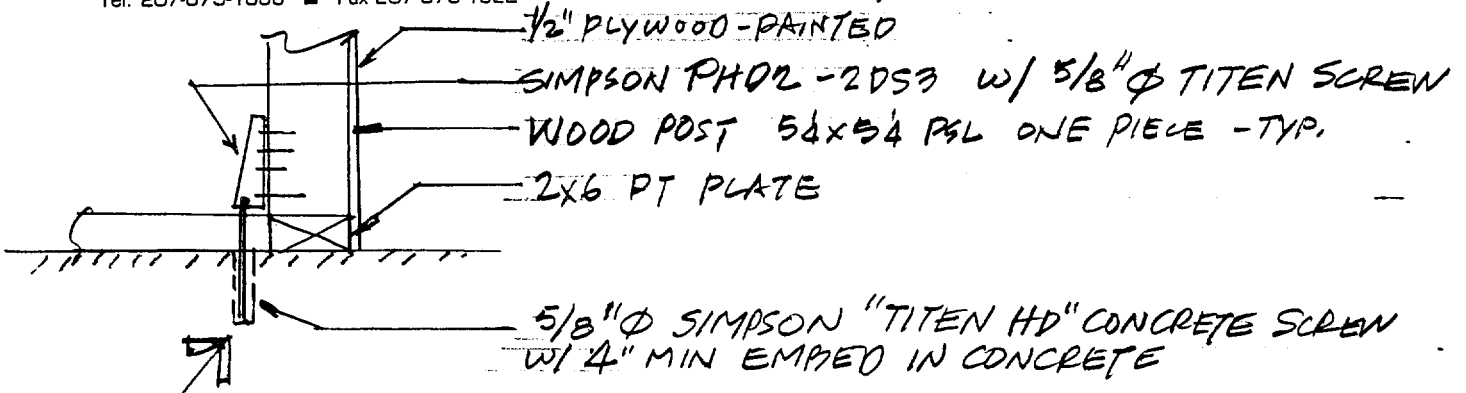 1/2" PLYWOOD-PAINTED
SIMPSON PHD2-2DS3 W/ 5/8"Ø TITEN SCREW
WOOD POST 5¼x5¼ PSL ONE PIECE -TYP.
2x6 PT PLATE
5/8"Ø SIMPSON "TITEN HD" CONCRETE SCREW
W/ 4" MIN EMBED IN CONCRETE